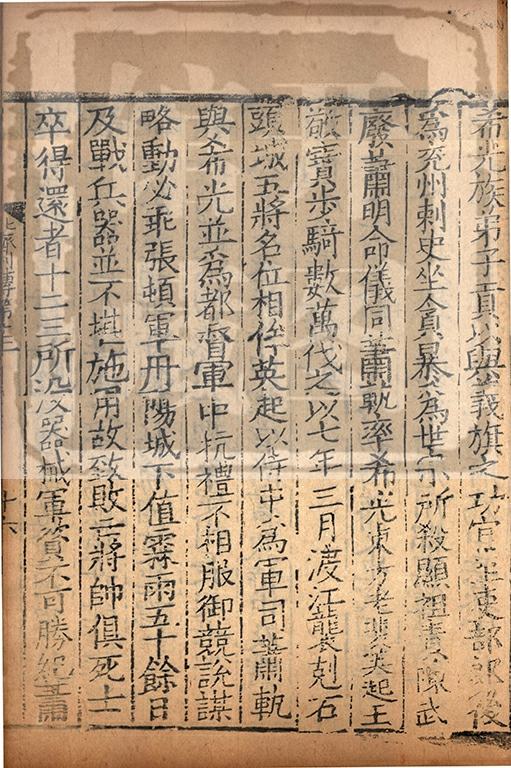 希光族弟子貢以與義旗之功官至吏部郎後
爲兖州刺史坐貪暴爲世宗所殺顯祖責陳武
廢蕭明命儀同蕭軌率希光東方老裴英起王
敬寶步騎數萬伐之以七年三月渡江襲剋石
頭城五將名位相侔英起以侍中爲軍司蕭軌
與希光並爲都督軍中抗禮不相服御競說謀
略動必乖張頓軍丹陽城下值霖雨五十餘日
及戰兵器並不堪施用故致敗亡將帥俱死士
卒得還者十二三所没器械軍資不可勝紀蕭